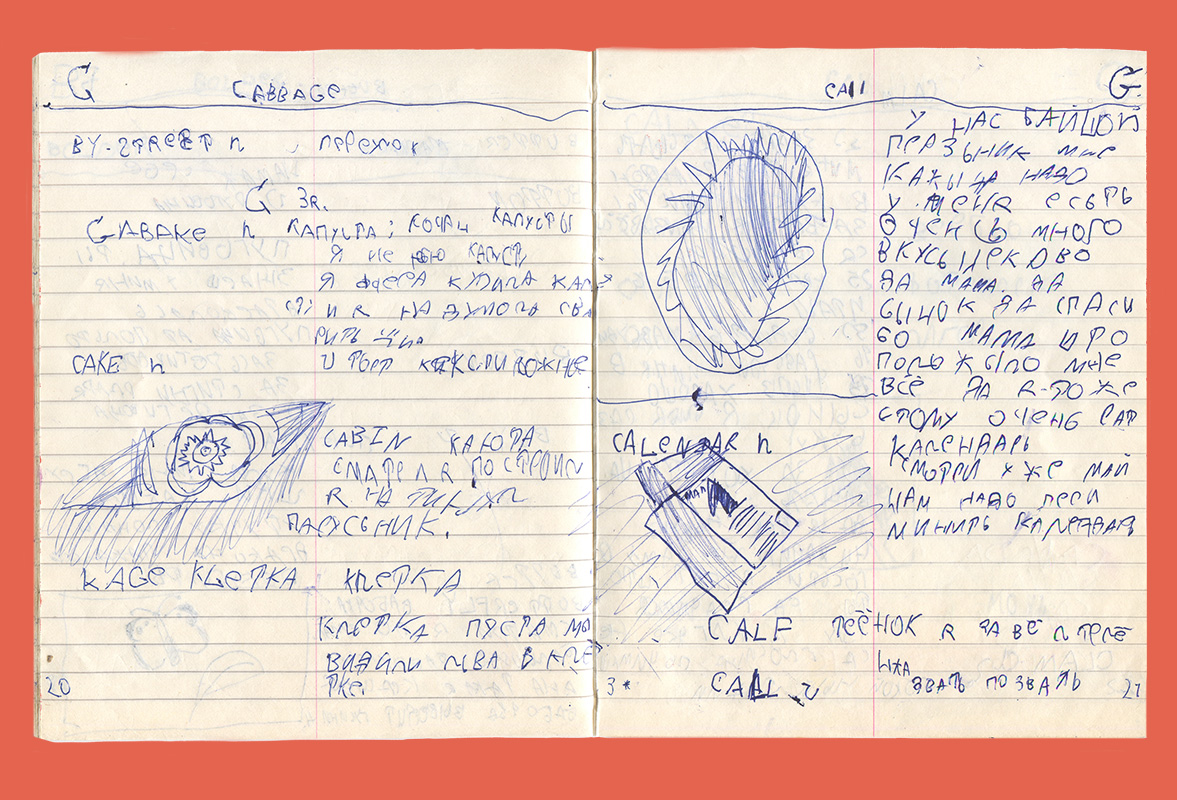 G
CABBAGE
BY-STREET n , переуок
G 3R.
GABAKE n КАПУСТА; КОЧАН КАПУСТЫ
Я НЕ ЕМ КАПУСТУ
Я ВЧЕРА КУПИЛА КАП
И Я НАДУМОЛА СВА
РИТЬ ЩИ
CAKE n
U ТОРТ КЕКС ИЛИ
CABIN КАЮТА
СМАТРЕЛ Я ПОСТРОИЛ
ПАРУСЬНИК.
KAGE КЛЕТКА КЛЕТКА
КЛЕТКА ПУСТА МЫ
ВИДИЛИ ЛЬВА В КЛЕ
ТКЕ.
20
CALL
G
У НАС БАЛЬШОЙ
ПРАЗЬНИК МНЕ
КАЖЫЦА НАДО
У МЕНЯ ЕСЬТЬ
ОЧЕНЬ МНОГО
ВКУСЬНЕКОВО
ДА МАМА. ДА
СЫНОК ДА СПАСИ
БО МАМА ШТО
ПОЛОЖЫЛО МНЕ
ВСЁ ДА Я-ТОЖЕ
ЕТОМУ ОЧЕНЬ РАТ
CALENDAR n
КАЛЕНДАРЬ
СМОТРИ УЖЕ МАЙ
НАМ НАДО ПЕРИ
МИНИТЬ КАЛЕНДАРЬ
МАЙ
CALF ТЕЁНОК Я ЗАВЁЛ ТЕЛЁ
НКА
3*
CALL
ЗВАТЬ ПОЗВАТЬ
21